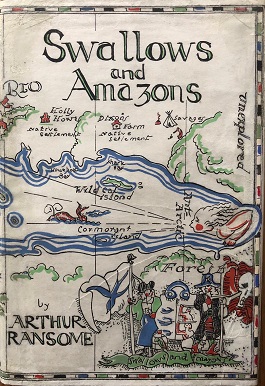 Swallows
and
Amazons
RIO
Holly
Howe
Native
Settlement
Dixon's
Farm
Native
Settlement
Savages
unexplored
Wild Cat
Island
Cormorant
Island
The
Arctic
Forest
by
ARTHUR
RANSOME
Swallows and Amazons